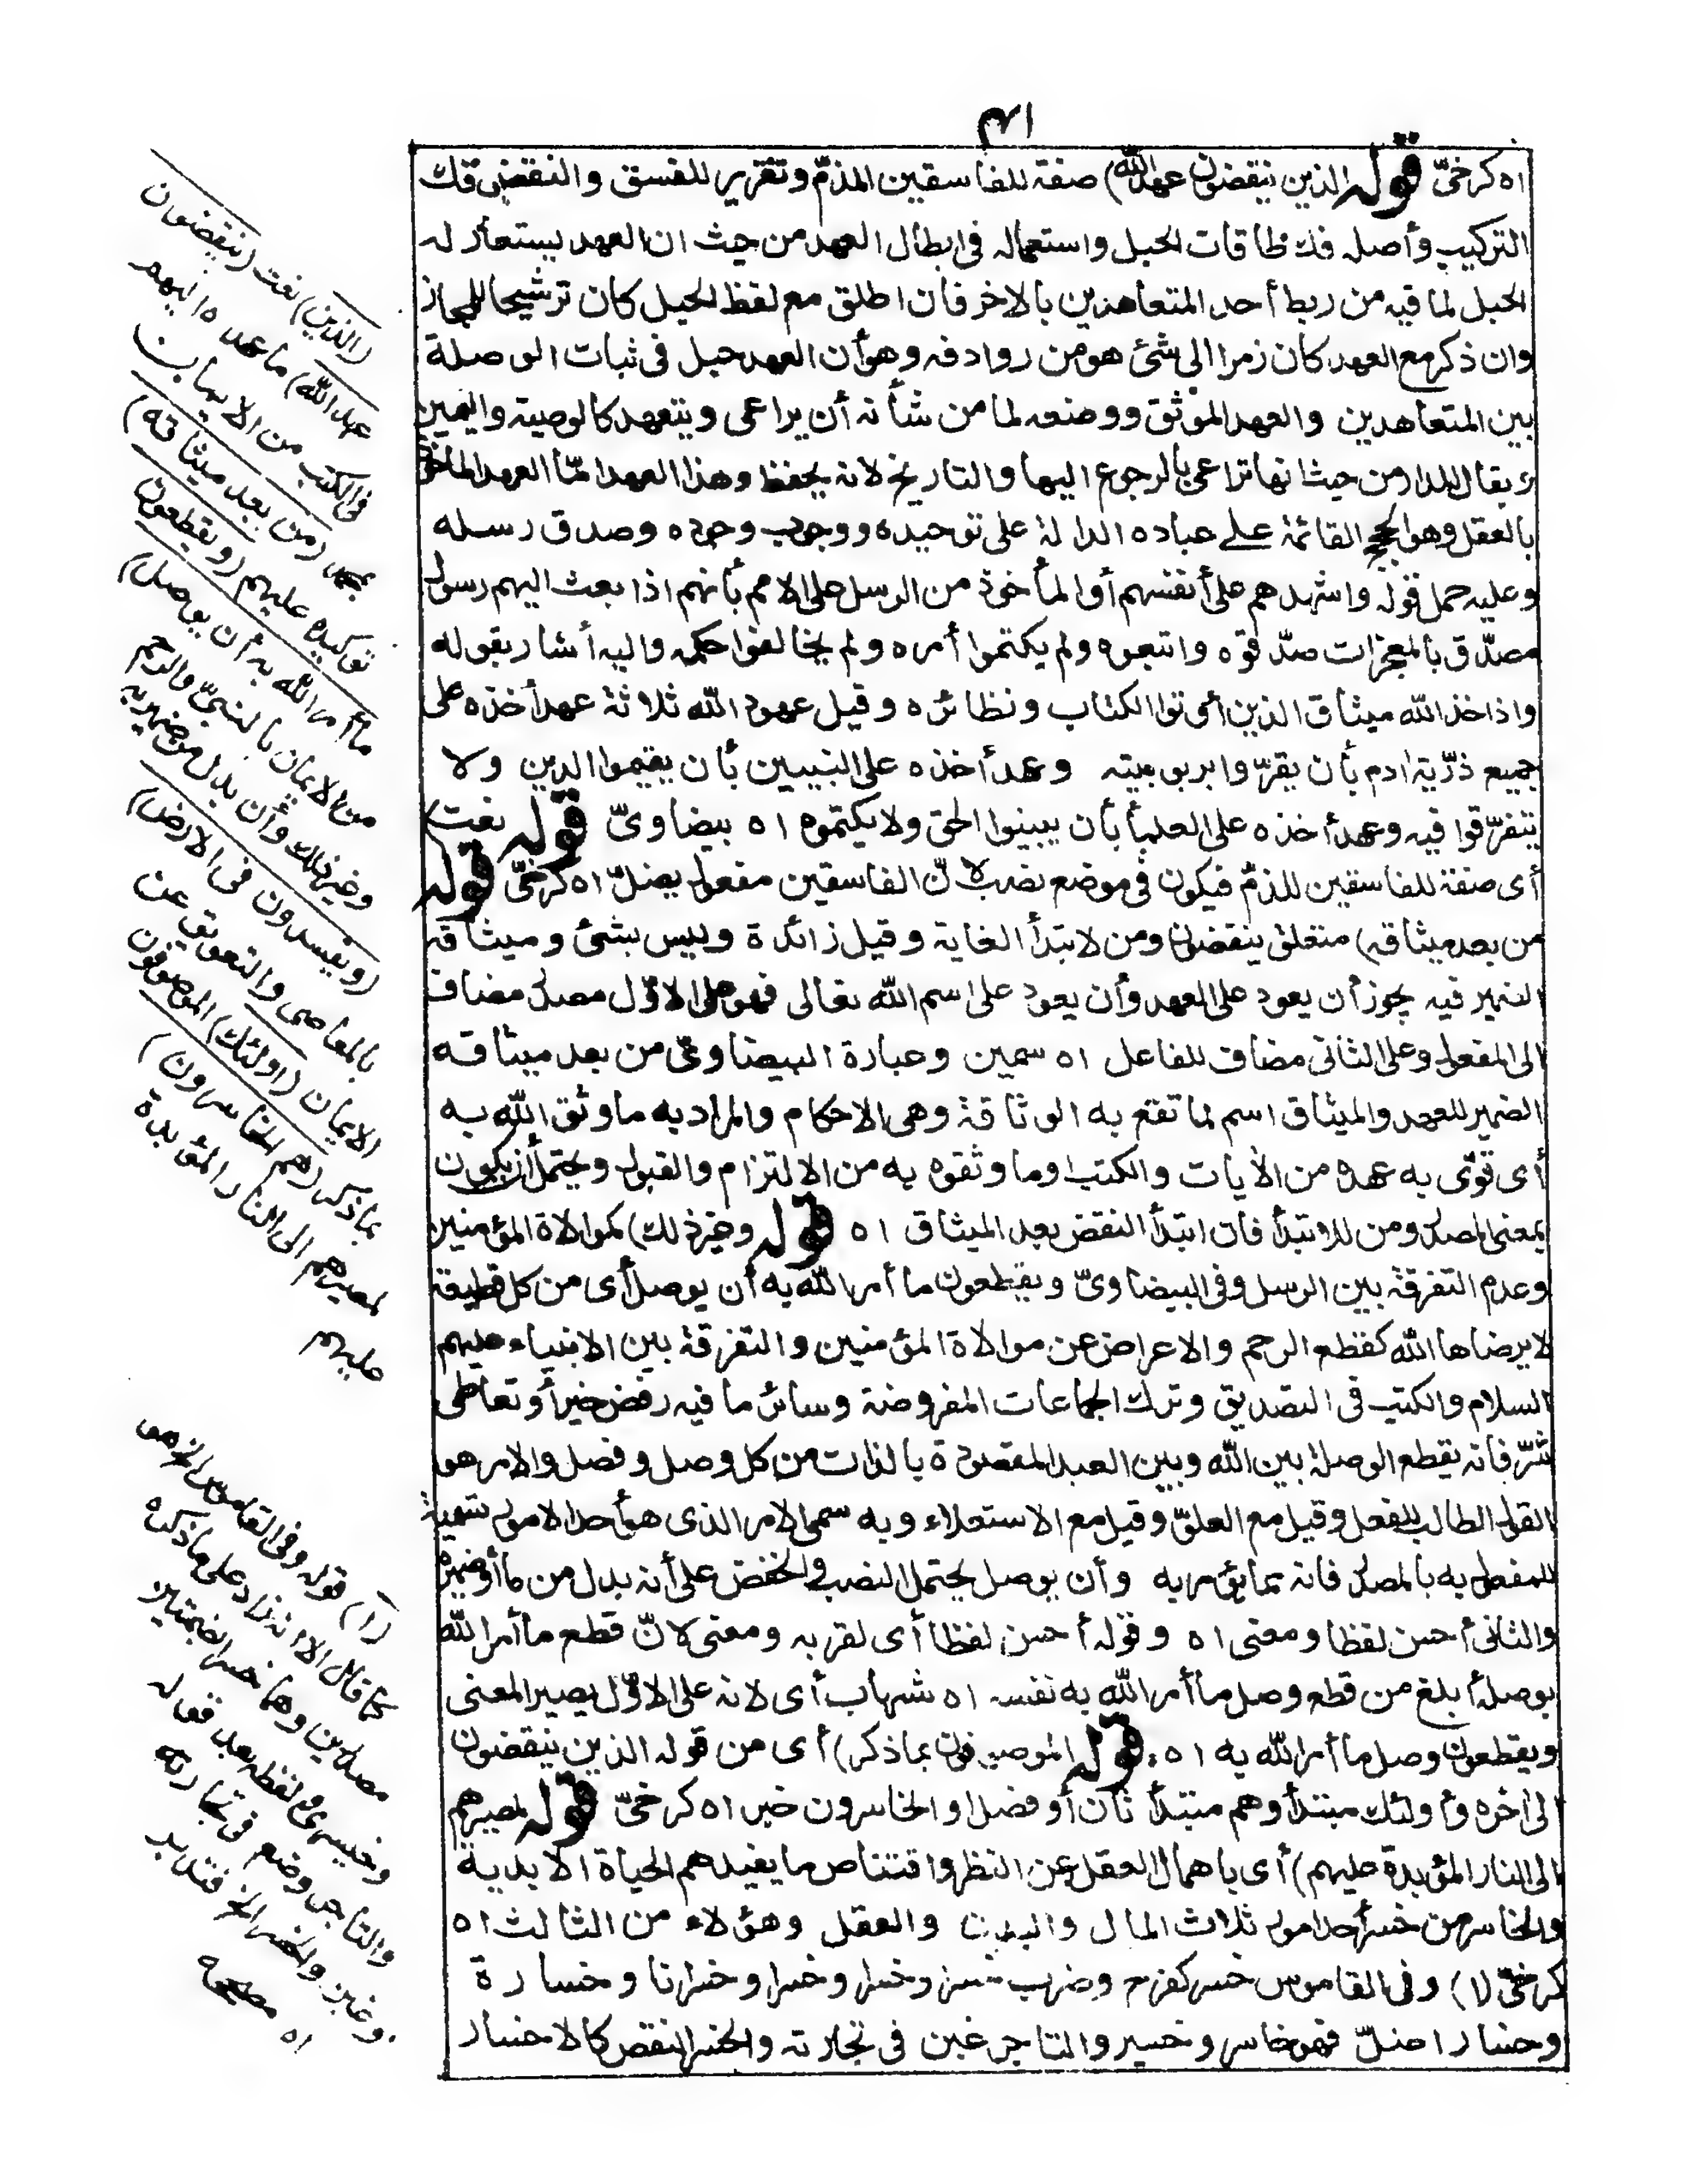 ٤١
اه كرخىّ قوله الذين ينقضون عهد الله) صفة للفاسقين للذمّ وتقرير للفسق والنقض فك
التركيب وأصله فك طاقات الحبل واستعماله فى ابطال العهد من حيث ان العهد يستعار له
الحبل لما فيه من ربط أحد المتعاهدين بالاخر فان اطلق مع لفظ الحبل كان ترشيحا للمجاز
وان ذكر مع العهد كان رمزا الى شئ هو من روادفه وهو أن العهد حبل فى ثبات الوصلة
بين المتعاهدين والعهد الموثق ووضعه لما من شأنه أن يراعى ويتعهد كالوصية واليمين
ويقال للدار من حيث انها تراعى بالرجوع اليها والتاريخ لانه يحفظ وهذا العهد امّا العهد المأخوذ
بالعقل وهو الحجج القائمة على عباده الدالة على توحيده ووجوب وجوده وصدق رسله
وعليه حمل قوله واشهدهم على أنفسهم أو المأخوذ من الرسل على الامم بأنهم اذا بعث اليهم رسول
مصدّق بالمعجزات صدّقوه واتبعوه ولم يكتموا أمره ولم يخالفوا حكمه واليه أشار بقوله
واذ اخذ الله ميثاق الذين أوتوا الكتاب ونظائره وقيل عهود الله ثلاثة عهد أخذه على
جميع ذرّية ادم بأن يقرّوا بربوبيته وعهد أخذه على النبيين بأن يقيموا الدين ولا
يتفرّقوا فيه وعهد أخذه على العلماء بأن يبينوا الحق ولا يكتموه اه بيضاوىّ قوله نعت)
أى صفة للفاسقين للذمّ فيكون فى موضع نصب لانّ الفاسقين مفعول يضلّ اه كرخىّ قوله
من بعد ميثاقه) متعلق بينقضون ومن لابتدأ الغاية وقيل زائدة وليس بشئ وميثاقه
الضمير فيه يجوز أن يعود على العهد وأن يعود على اسم الله تعالى فهو على الاوّل مصدر مضاف
الى المفعول وعلى الثانى مضاف للفاعل اه سمين وعبارة البيضاوىّ من بعد ميثاقه
الضمير للعهد والميثاق اسم لما تقع به الوثاقة وهى الاحكام والمراد به ما وثق الله به
أى قوّى به عهده من الأيات والكتب وما وثقوه به من الالتزام والقبول ويحتمل أن يكون
بمعنى المصدر ومن للابتدأ فان ابتدأ النقض بعد الميثاق اه قوله وغير ذلك) كموالاة المؤمنين
وعدم التفرقة بين الرسل وفى البيضاوىّ ويقطعون ما أمر الله به أن يوصل أى من كل قطيعة
لا يرضاها الله كقطع الرحم والاعراض عن موالاة المؤمنين والتفرقة بين الانبياء عليهم
السلام والكتب فى التصديق وترك الجماعات المفروضة وسائر ما فيه رفض خير أو تعاطى
شرّ فانه يقطع الوصلة بين الله وبين العبد المقصودة بالذات من كل وصل وفصل والامر هو
القول الطالب للفعل وقيل مع العلوّ وقيل مع الاستعلاء وبه سمى الامر الذى هو أحد الامور تسمية
للمفعول به بالمصدر فانه مما يؤمر به وأن يوصل يحتمل النصب والخفض على أنه بدل من ما أو ضميره
والثانى أحسن لفظا ومعنى اه وقوله أحسن لفظا أى لقربه ومعنى لانّ قطع ما أمر الله
بوصله أبلغ من قطع وصل ما أمر الله به نفسه اه شهاب أى لانه على الاوّل يصير المعنى
ويقطعون وصل ما أمر الله به اه قوله الموصوفون بما ذكر) أى من قوله الذين ينقضون
الى أخره وأولئك مبتدأ وهم مبتدأ ثان أو فصل والخاسرون خبر اه كرخىّ قوله لمصيرهم
الى النار المؤبدة عليهم) أى باهمال العقل عن النظر واقتناص ما يفيدهم الحياة الابدية
والخاسر من خسر أحد امور ثلاث المال والبدن والعقل وهؤلاء من الثالث اه
كرخىّ (١) وفى القاموس خسر كفرح وضرب خسرا وخسرا وخسرا وخسرانا وخسارة
وخسارا ضلّ فهو خاسر وخسير والتاجر غبن فى تجارته والخسر النقص كالاخسار
(الذين) نعت (ينقضون
عهد الله) ما عهده اليهم
فى الكتب من الايمان
بمحمد (من بعد ميثاقه)
توكيده عليهم (ويقطعون
ما أمر الله به أن يوصل)
من الايمان بالنبىّ والرحم
وغير ذلك وأن بدل من ضمير به
(ويفسدون فى الارض)
بالمعاصى والتعويق عن
الايمان (اولئك) الموصوفون
بما ذكر (هم الخاسرون)
لمصيرهم الى النار المؤبدة
عليهم
(١) قوله وفى القاموس الخ هو
كما قال الا انه زاد على ما ذكره
مصدرين وهما خسر بضمتين
وخسرى ولفظه بعد قوله
والتاجر وضع فى تجارته
وغبن والخسر الخ فتدبر
اه مصححه